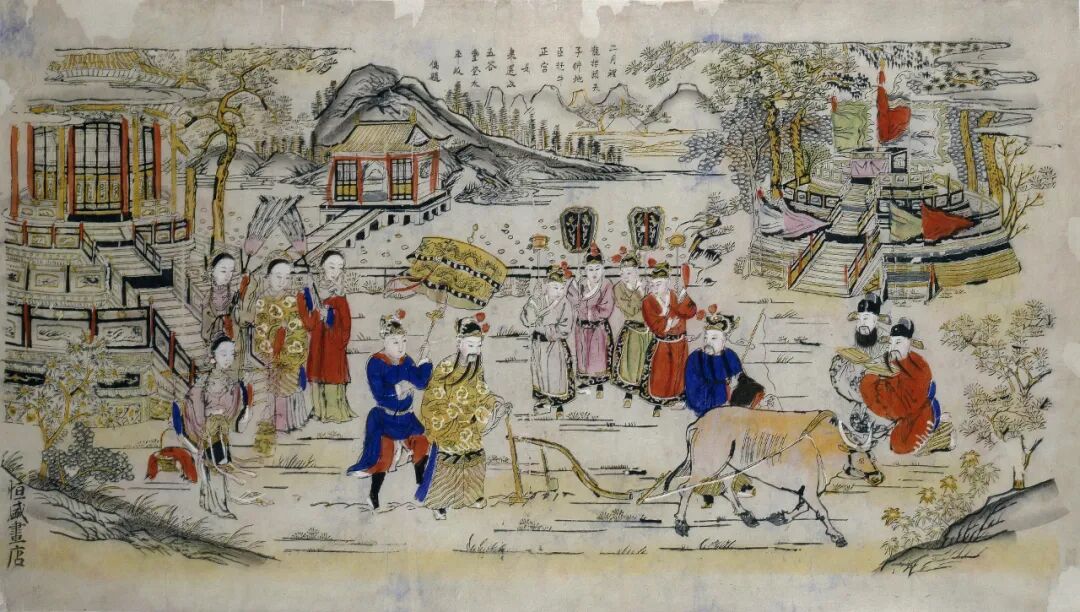 二月裡
龍抬頭天
子耕地
臣赶牛
正宮
來送飯
五谷
豐登太
平
偶題
恒盛畫店